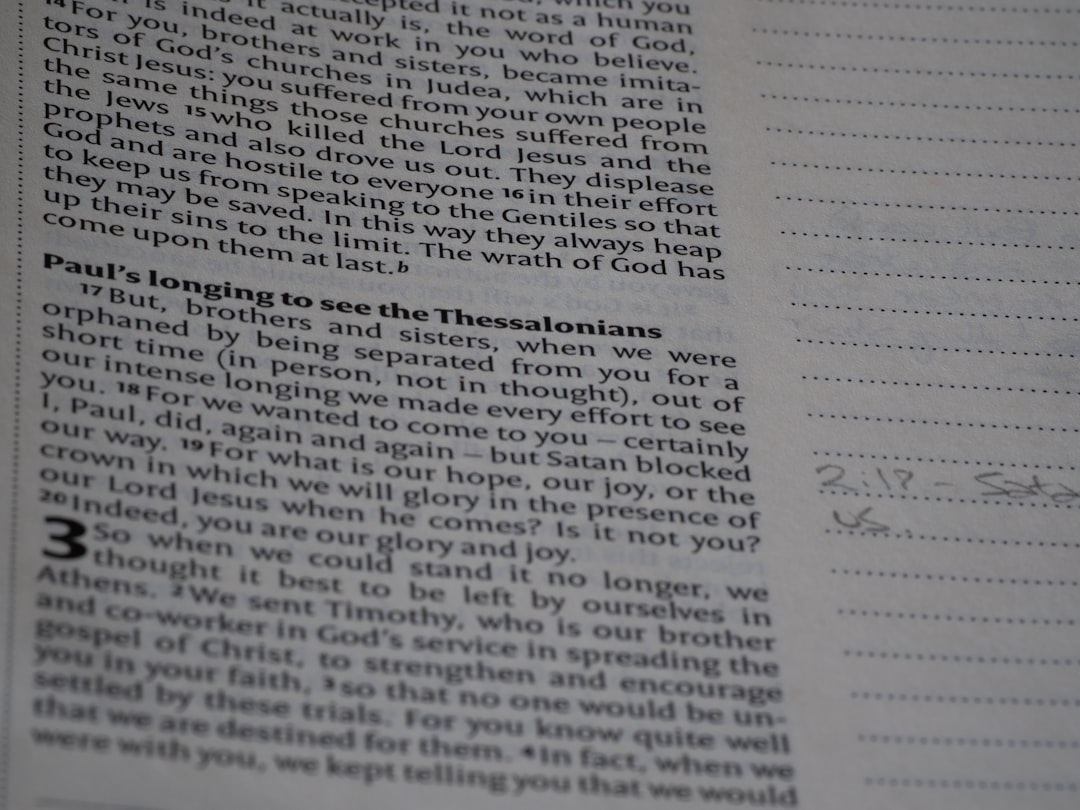 cepted it not as a human
it actually is, the word of God,
is indeed at work in you who believe.
14 For you, brothers and sisters, became imita-
tors of God's churches in Judea, which are in
Christ Jesus: you suffered from your own people
the same things those churches suffered from
the Jews 15 who killed the Lord Jesus and the
prophets and also drove us out. They displease
God and are hostile to everyone 16 in their effort
to keep us from speaking to the Gentiles so that
they may be saved. In this way they always heap
up their sins to the limit. The wrath of God has
come upon them at last.b
Paul's longing to see the Thessalonians
17 But, brothers and sisters, when we were
orphaned by being separated from you for a
short time (in person, not in thought), out of
our intense longing we made every effort to see
you. 18 For we wanted to come to you – certainly
I, Paul, did, again and again – but Satan blocked
our way. 19 For what is our hope, our joy, or the
crown in which we will glory in the presence of
our Lord Jesus when he comes? Is it not you?
20 Indeed, you are our glory and joy.
3 So when we could stand it no longer, we
thought it best to be left by ourselves in
Athens. 2 We sent Timothy, who is our brother
and co-worker in God's service in spreading the
gospel of Christ, to strengthen and encourage
you in your faith, 3 so that no one would be un-
settled by these trials. For you know quite well
that we are destined for them. 4 In fact, when we
were with you, we kept telling you that we would
2:18 – Sata
us